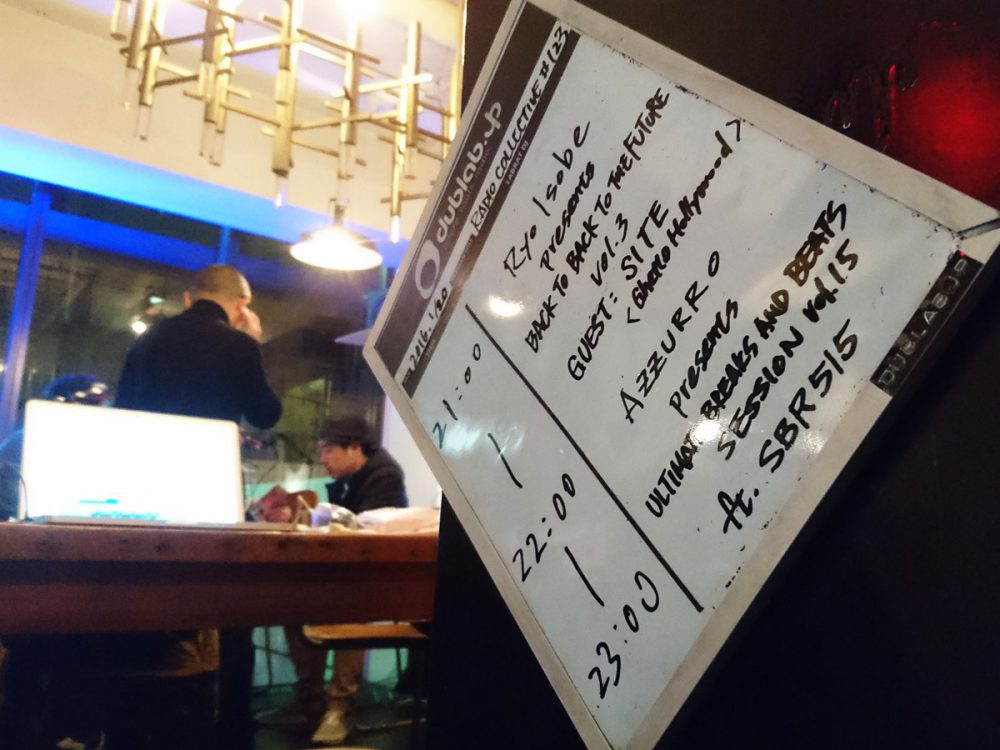 dublab.jp
LABRAT DJ
2016.1/20 RADIO COLLECTIVE #123
21:00
|
22:00
|
23:00
Ryo Isobe
presents
BACK TO BACK TO THE FUTURE
vol.3
GUEST: SITE
<Ghetto Hollywood>
AZZURRO
presents
ULTIMATE BREAKS AND BEATS
SESSION vol.15
At. SBR515
DUBLAB.JP